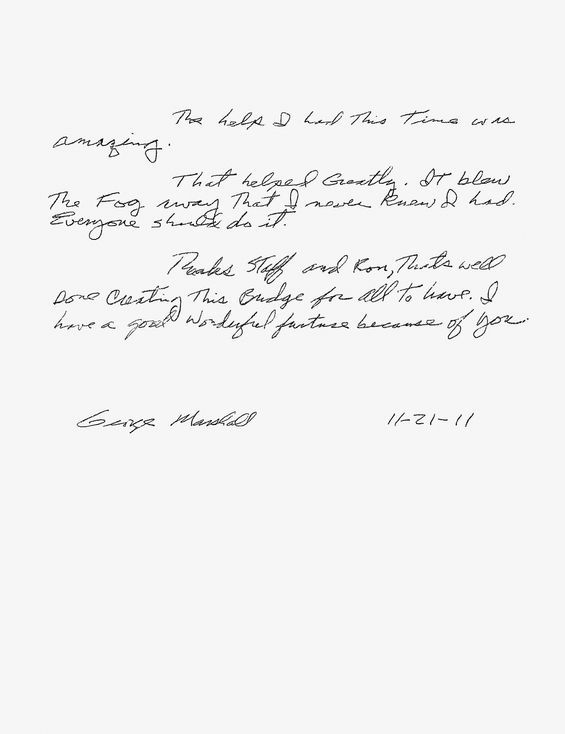 The help I had This Time was
amazing.
That helped Greatly. IT blew
The Fog away That I never Knew I had.
Everyone should do it.
Thanks Staff and Ron, Thats well
Done Creating This Bridge for all to have. I
have a good wonderful future because of you.
George Marshall 11-21-11